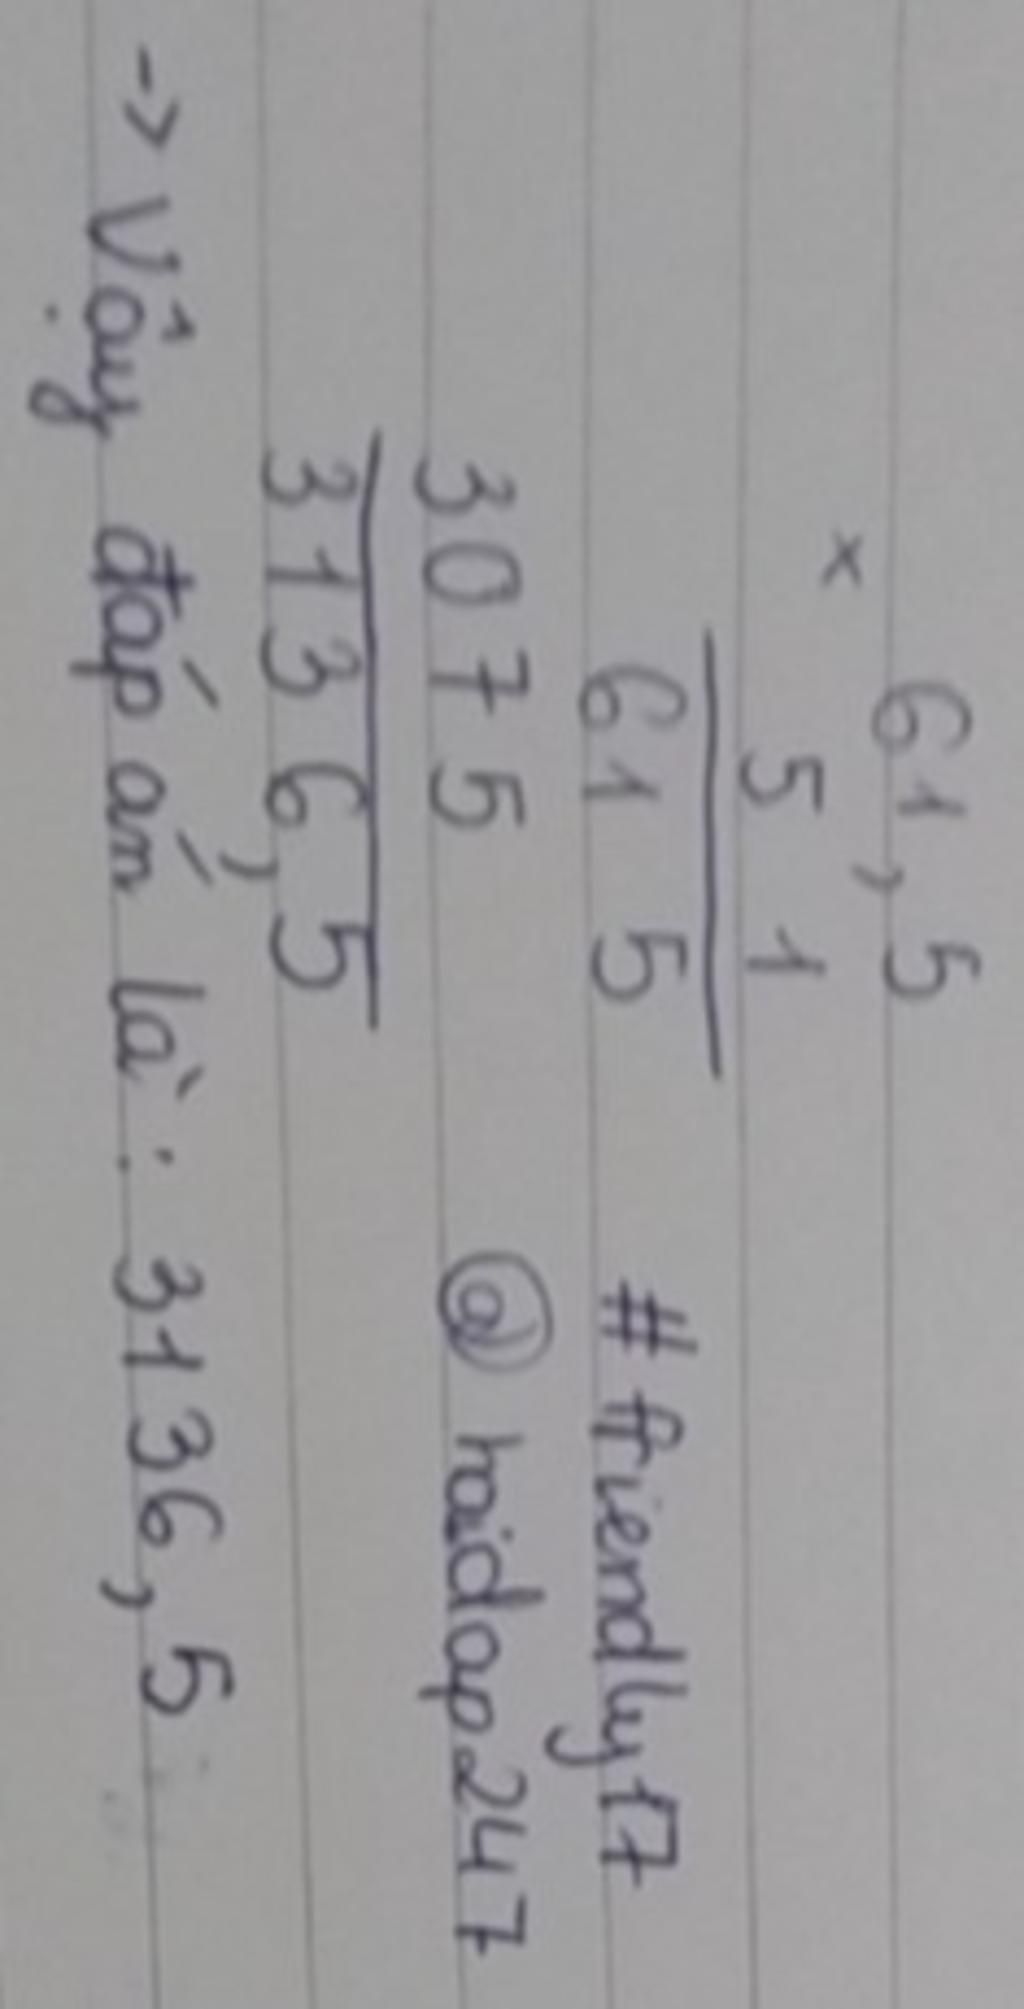 61,5
×
51
615 #friendly17
3075 @hoidap247
3136,5
-> Vậy đáp án là: 3136,5